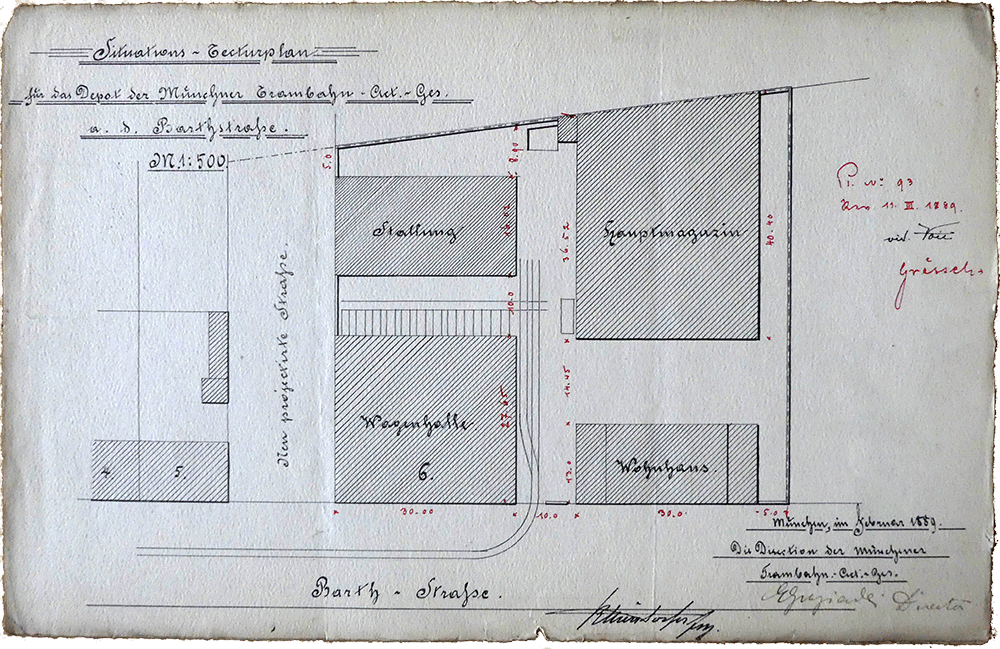 Situations - Tecturplan
für das Depot der Münchner Trambahn - Act. - Ges.
a. d. Barthstraße.
M. 1:500
5.0
8.90
Stallung
16.02
36.52
Hauptmagazin
40.40
Pl. No: 93
11. III. 1889.
vid.
Neu projectirte Straße.
10.0
Wagenhalle
27.05
14.45
6.
4.
5.
Wohnhaus.
13.0
30.00
10.0
30.0
5.0
München, im Februar 1889.
Die Direction der Münchener
Trambahn. - Act. - Ges.
Director
Barth - Straße.